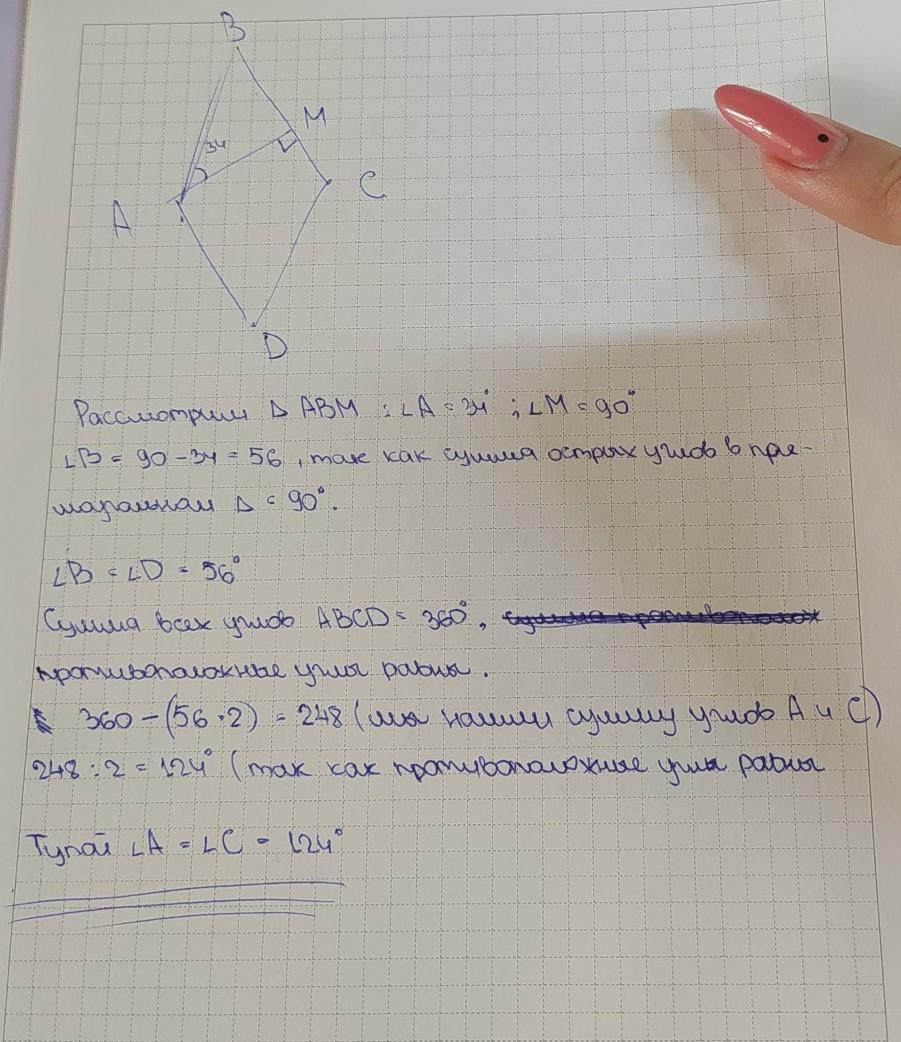 B
M
34
C
A
D
Рассмотрим Δ ABM : ∠A = 34° ; ∠M = 90°
∠B = 90 - 34 = 56 , так как сумма острых углов в пря-
моугольном Δ = 90°.
∠B = ∠D = 56°
Сумма всех углов ABCD = 360°, сумма противополож
противоположные углы равны.
360 - (56 · 2) = 248 (мы нашли сумму углов A и C)
248 : 2 = 124° (так как противоположные углы равны
Тупой ∠A = ∠C = 124°